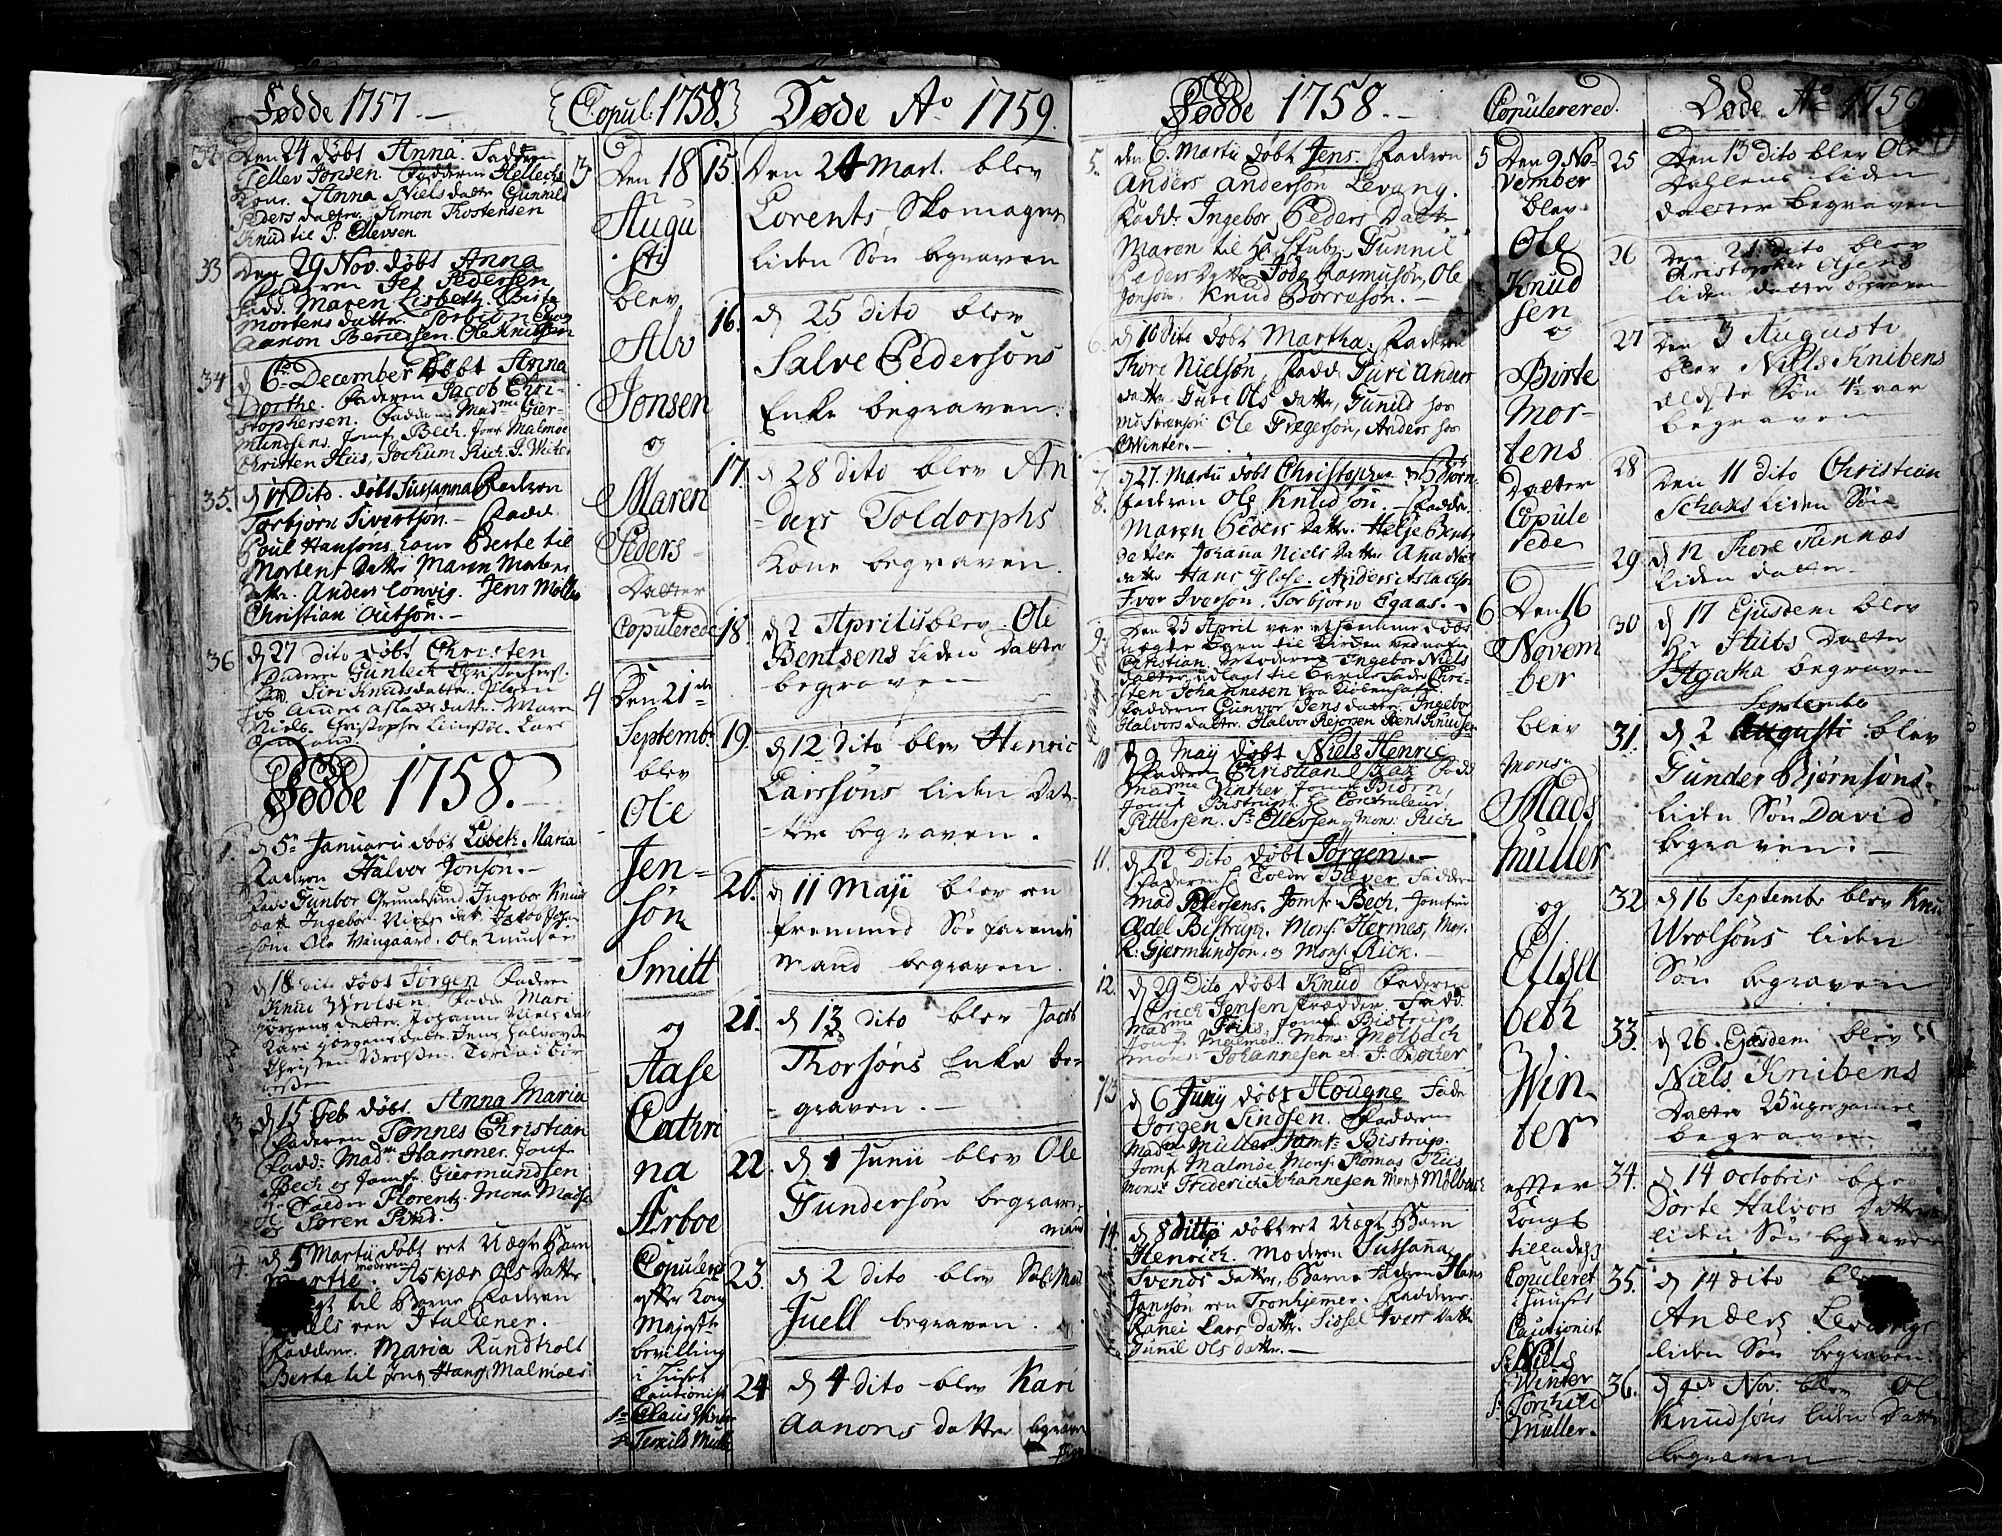 Fødde 1757.
32 Den 24 døbt Anna. Fadder
Tellev Jonsen. Fadderne Hellechs
Kone. Anna Niels datter Gunnild
Peders datter. Simon Thostensen
Knud til P. Ellevsen
33 Den 29 Nov. døbt Anna
Faderen Jes Pedersen
Fadd. Maren Lisbeth. Birte
Mortens datter. Torbiørn Egaas
Aanon Beriersen. Ole Knudsen
34 d 6te December døbt Anna
Dorthe. Faderen Jacob Chri-
stophersen. Faddere Madme Gier-
mundsens. Jomf. Bech. Jomf Malmøe
Christen Hiis, Jochum Rich. J. Winter
35. d 17 Dito. døbt Sussanna Faderen
Torbjörn Sivertsön.- Fadd.
Poul Hansøns kone Berte til
Mortens Datter Maren Mortens
datter. Anders Lønvig. Jens Møller
Christian Outsön.-
36 d 27 dito døbt Christen
Faderen Gunlech Christophers.
Siri Knudsdatter.
Anne Aslachsdatter. Maren
Niels. Christopher Lars
Fødde 1758.-
1. d 5te Januarii døbt Lisbeth Maria
Faderen Halvor Jonsøn.-
Fadd Gunbor Grundesund. Ingebor Knud
datt Ingebor Niels dat. Jacob
Ole Vingaard. Ole Knudsen
2 d 18 dito døbt Jörgen Faderen
Knud Wrolsen. Fadde Mari
Jørgens datter. Johanne Niels dat
Kari Jørgens datter. Jens Halvorsøn
Christen
3 d 15 Feb døbt. Anna Maria
Faderen Tønnes Christian
Fadd: Madm Hammer. Jomf
Bech og Jomfr. Giermundsen
Hr. Tolder Florentz. Mons Madsen
og Søren Pind.
4. d 5 Martii døbt et Uægte Barn
moderen
Marthe. Askjær Ols datter
til Barne Faderen
Niels en Italiener.
Fadderne. Maria Rundholt
Berte til Hans Malmøes
{Copul: 1758.}
3 Den 18
Augu
sti
blev
Alv
Jonsen
og
Maren
Peders-
Datter
Copulerede
4 Den 21de
Septembr.
blev
Ole
Jen=
sön
Smitt
og
Aase
Cathri
na
Arboe
Copulered
efter Kong
Majestt
bevilling
i Huset
Cautionist
Sr Claus Winter
Sr Temild Mull
Døde Ao 1759.
15. Den 24 Mart. blev
Lorents Skomagers
liden Søn begraven
16. d 25 dito blev
Salve Pedersøns
Enke begraven.
17. d 28 dito blev An
=ders Toldorphs
Kone begraven.
18. d 2 Aprilis blev Ole
Bentsens liden Datter
begraven
19. d 12 dito blev Henric
Larssøns liden Dat-
-ter begraven.
20. d 11 Maji blev en
fremmed Søe farende
Mand begraven.
21. d 13 dito blev Jacob
Thorsøns Enke be-
=graven.-
22. d 1 Junii blev Ole
Gundersön begraven
mand
23. d 2 dito blev Sal. Mad
Juell begraven.
24 d 4 dito blev Kari
Aanons datter begraven
Fødde 1758.-
5. den 6. Martii døbt Jens. Faderen
Anders Andersøn Levang.
Fadd: Ingebor Peders Datter
Maren til Hr Stubs. Gunnil
Peders Datter Jode Rasmusøn, Ole
Jonsøn, Knud Børresøn.-
6. d 10 Dito døbt Martha. Faderen
Thore Nielsøn, Fadd Guri Anders
datter Gure Ols datter, Gunild hos
Mo Sørensøn Ole Gregersøn, Anders hos
Winter.-
7. 8. d 27. Martii døbt Christopher et Biørn
Faderen Ole Knudsön. Fadde
Maren Peders Datter. Helje Bents
datter Johana Niels Datter Ana Niels
datter Hans Glase. Anders Aslachsøn
Iver Iversøn. Torbjørn Egaas.-
9. Den 25 April var et hiemme døbt
uægte Barn til Kirken ved navn
Christian. Moderen Ingebor Niels
datter, udlagt til Barne Fader Chri-
sten Johannesen fra Kiøbenhafn
Fadderne Gunvor Jens datter. Ingebor
Halvors datter. Halvor Rejersen Bent Knudsen
10 d 9 Maij døbt Niels Henric
Faderen Christian Fadd
Madme Winther. Jomfr Biørn,
Jomfr Bistrup. Hr Controleur.
Pettersen. Sr Ellevsen Mons: Rich
11. d 12 Dito døbt Jørgen.-
Faderen Sr Tolder Bøyer Fadder
Mad Petersens. Jomfr Bech. Jomfru
Ædel Bistrup. Mons: Hermes, Mons.
R. Gjermundsøn, og Mons: Rick.-
12. d 29 Dito døbt Knud Faderen
Erich Jensen Fadd.
Madme Friis. Jomfr Bistrup
Jomf. Malmøe. Mons: Molbach
Mons: Johannesen et J. Bøcher
13 d 6 Junij døbt Hougne Fade
Jörgen Sindsen. Fadderne
Madm Müller Jomfr Bistrup.
Jomf Malmøe Mons: Thomas Friis
Mons: Friderich Johannesen Mons Molbach
14. d 8 ditto døbt et Uægte Barn
Henrich. Moderen Sussana
Svends datter, Barne Faderen Hans
Janssøn en Tronhjemer. Fadderne.
Ranei Lars datter. Sissel Ivers datter
Gunil Ols datter.-
Copulerered.
5 Den 9 No-
vember
blev
Ole
Knud
sen
og
Birte
Mor-
tens
Datter
Copule
rede
6 Den 16
Novem
ber
blev
Monsr
Mads
Müller
og
Elisa
beth
Win-
ter
efter
Kongl
tilladelse
Copuleret
i Huuset
Cautionist
Sr Niels
Winter
Sr Torchild
Müller.-
Døde Ao 1759
25 Den 13 dito blev Ole
Dahlens liden
datter begraven
26 Den 21 dito blev
Christopher Olsens
liden datter begraven
27 Den 3 Augusti
blev Niels Knibens
eldste Søn 4½ aar
begraven
28 Den 11 dito Christian
Schaks liden Søn
29 d 12 Thore Sannæs
liden datter.
30 d 17 Ejusdem blev
Hr Stubs Datter
Agatha begraven
Septembr
31. d 2 Augusti blev
Gunder Bjørnsøns
liden Søn David
begraven.-
32 d 16 Septembr blev Knud
Wrolsøns liden
Søn begraven
33. d 26. Ejusdem blev
Niels Knibens
Datter 25 uger gammel
begraven
34. d 14 octobris blev
Dorte Halvors Datters
liden Søn begraven
35. d 14 dito blev
Anders Levangs
liden Søn begraven.
36. d 4de Nov. blev Ole
Knudsøns liden Datter
begraven